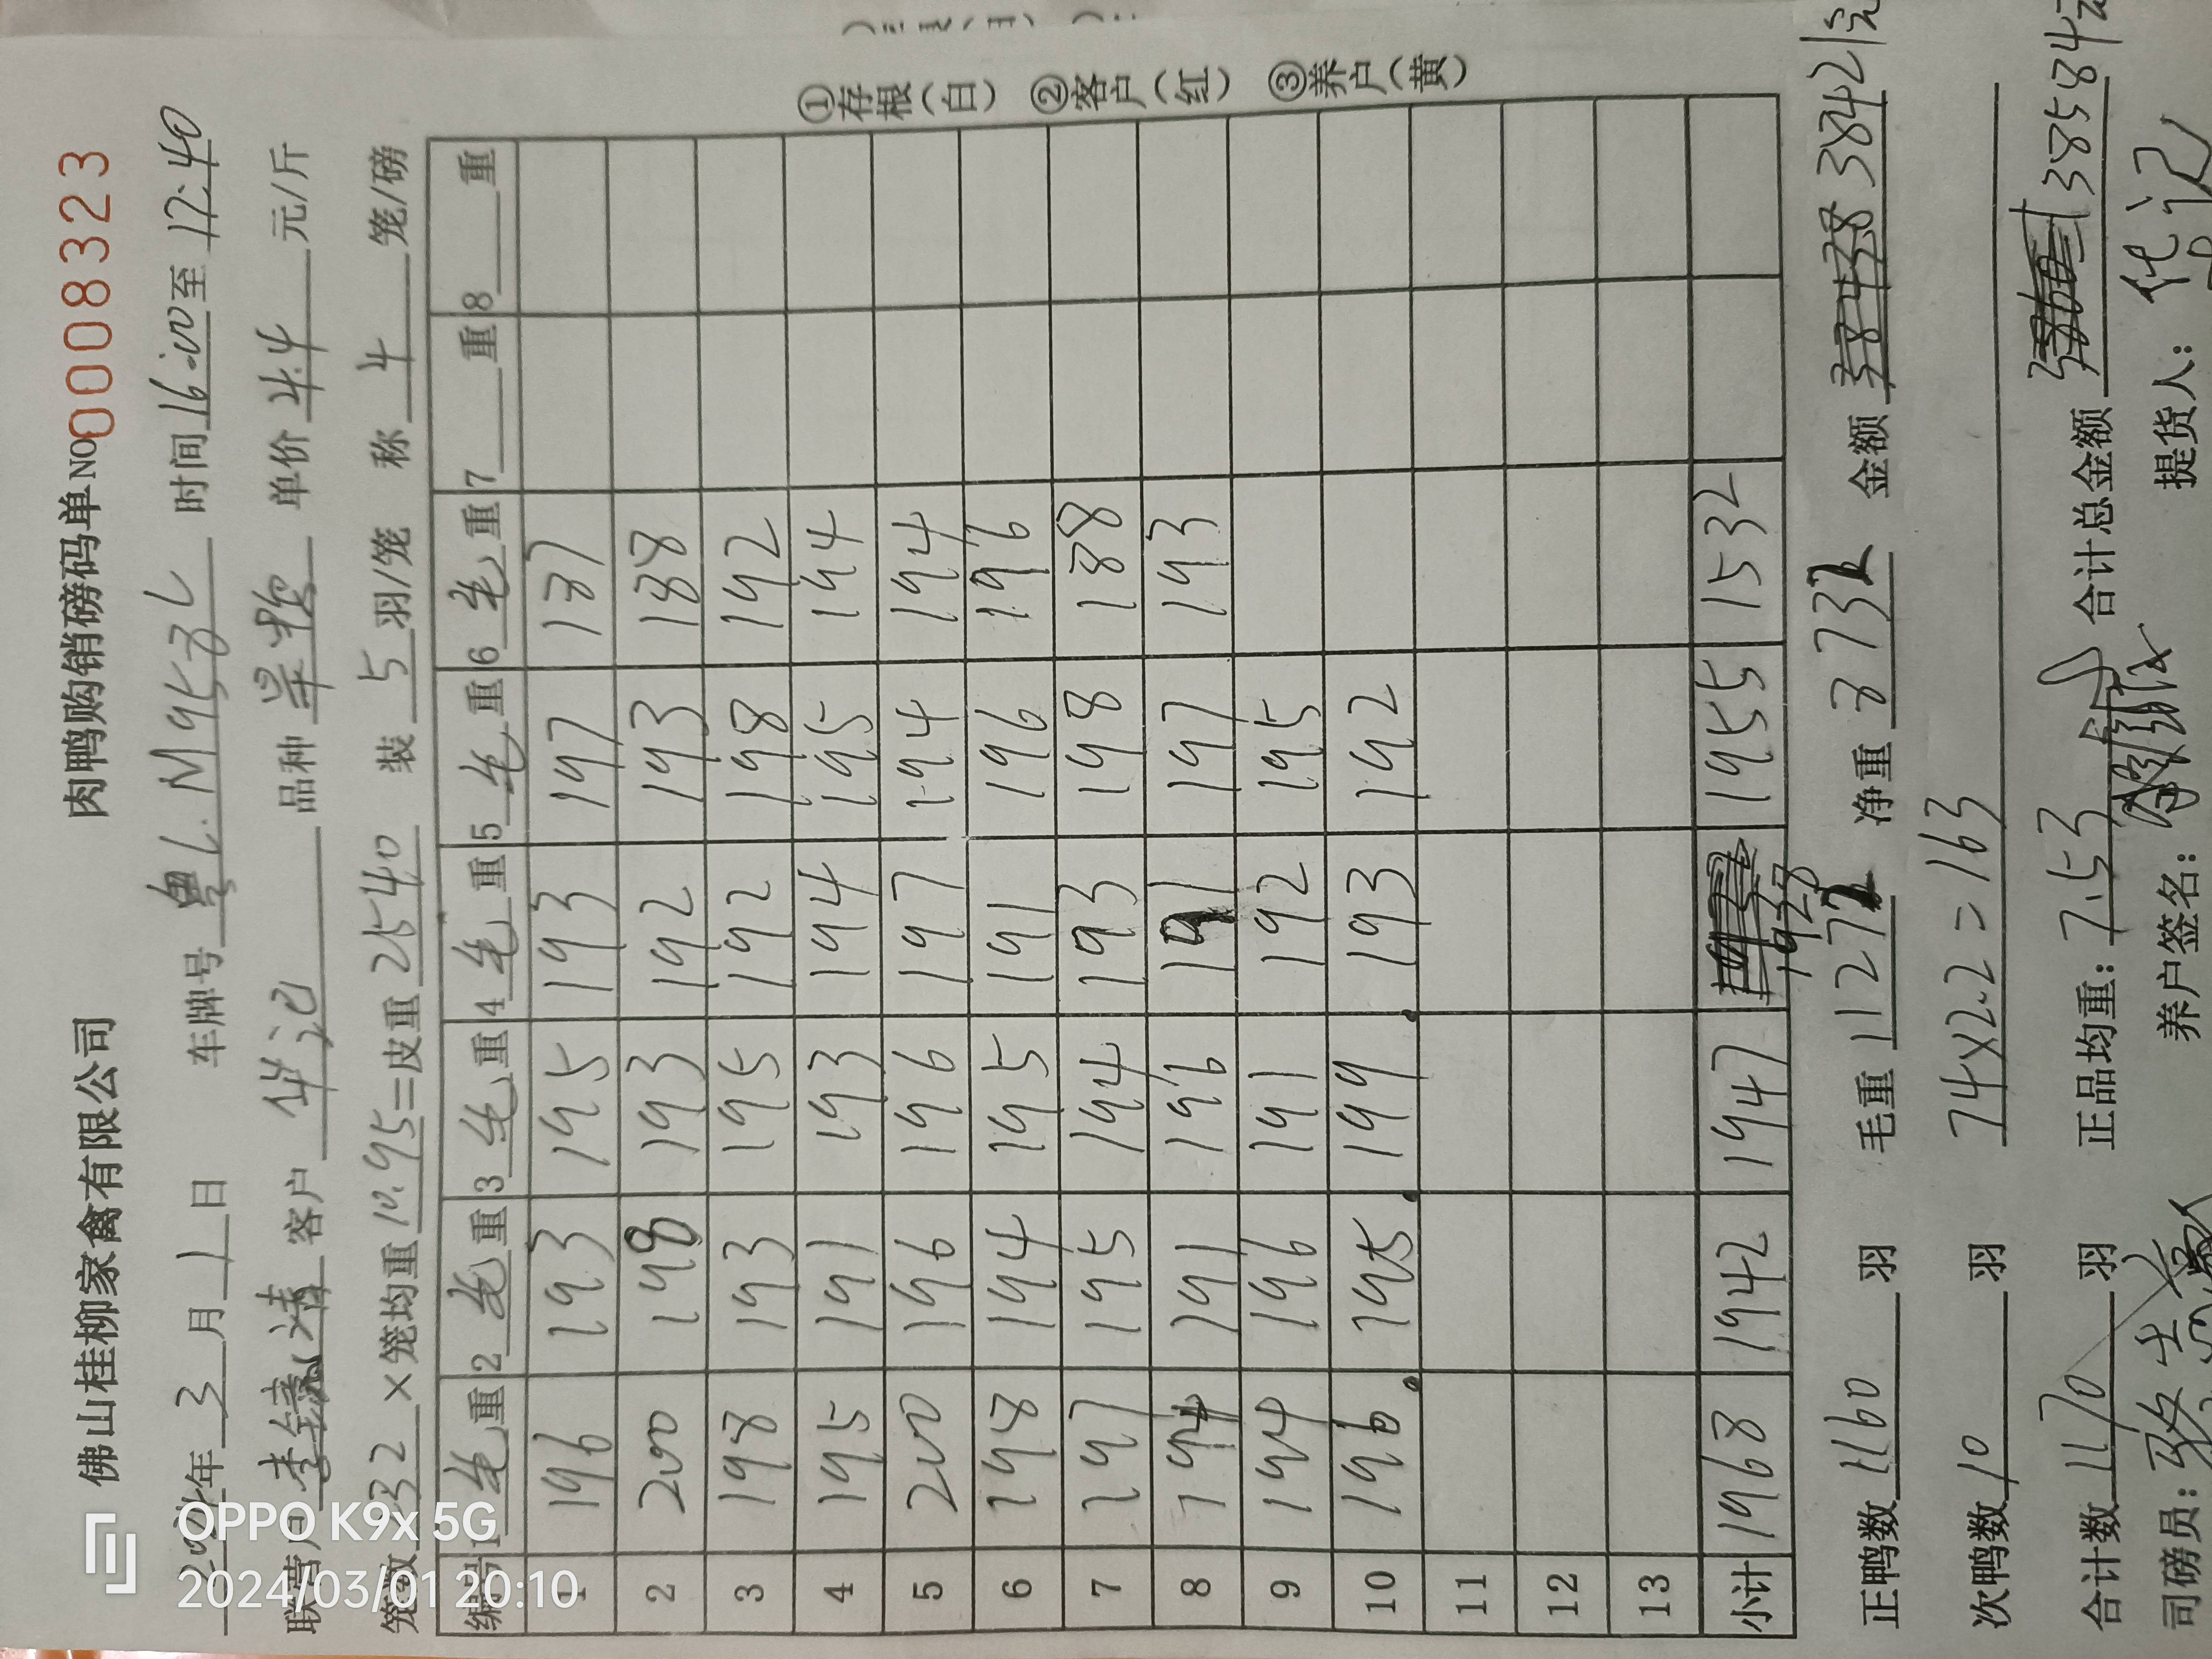 佛山桂柳家禽有限公司 肉鸭购销磅码单 NO 0008323
年3月1日 车牌号 粤L.M95 时间16:00至17:40
联营户 李镜清 客户 华记 品种 单价 4.4 元/斤
笼数 232 ×笼均重 10.95=皮重 2540 装 5 羽/笼 称 4 笼/磅
编号 1毛重 2毛重 3毛重 4毛重 5毛重 6毛重 7重 8重
1 196 193 195 193 197 187
2 200 198 193 192 193 188
3 198 193 195 192 198 192
4 195 191 193 194 195 194
5 200 196 196 197 194 194
6 198 194 195 191 196 196
7 197 195 194 193 198 188
8 194 191 196 191 197 193
9 194 196 191 192 195
10 196 195 199 193 192
11
12
13
小计 1968 1942 1947 1928 1955 1532
①存根(白) ②客户(红) ③养户(黄)
正鸭数 1160 羽 毛重 11272 净重 8732 金额 38421元
次鸭数 10 羽 74×2.2=163
合计数 1170 羽 正品均重: 7.53 合计总金额 38584元
司磅员: 养户签名: 提货人: 代记
OPPO K9x 5G
2024/03/01 20:10